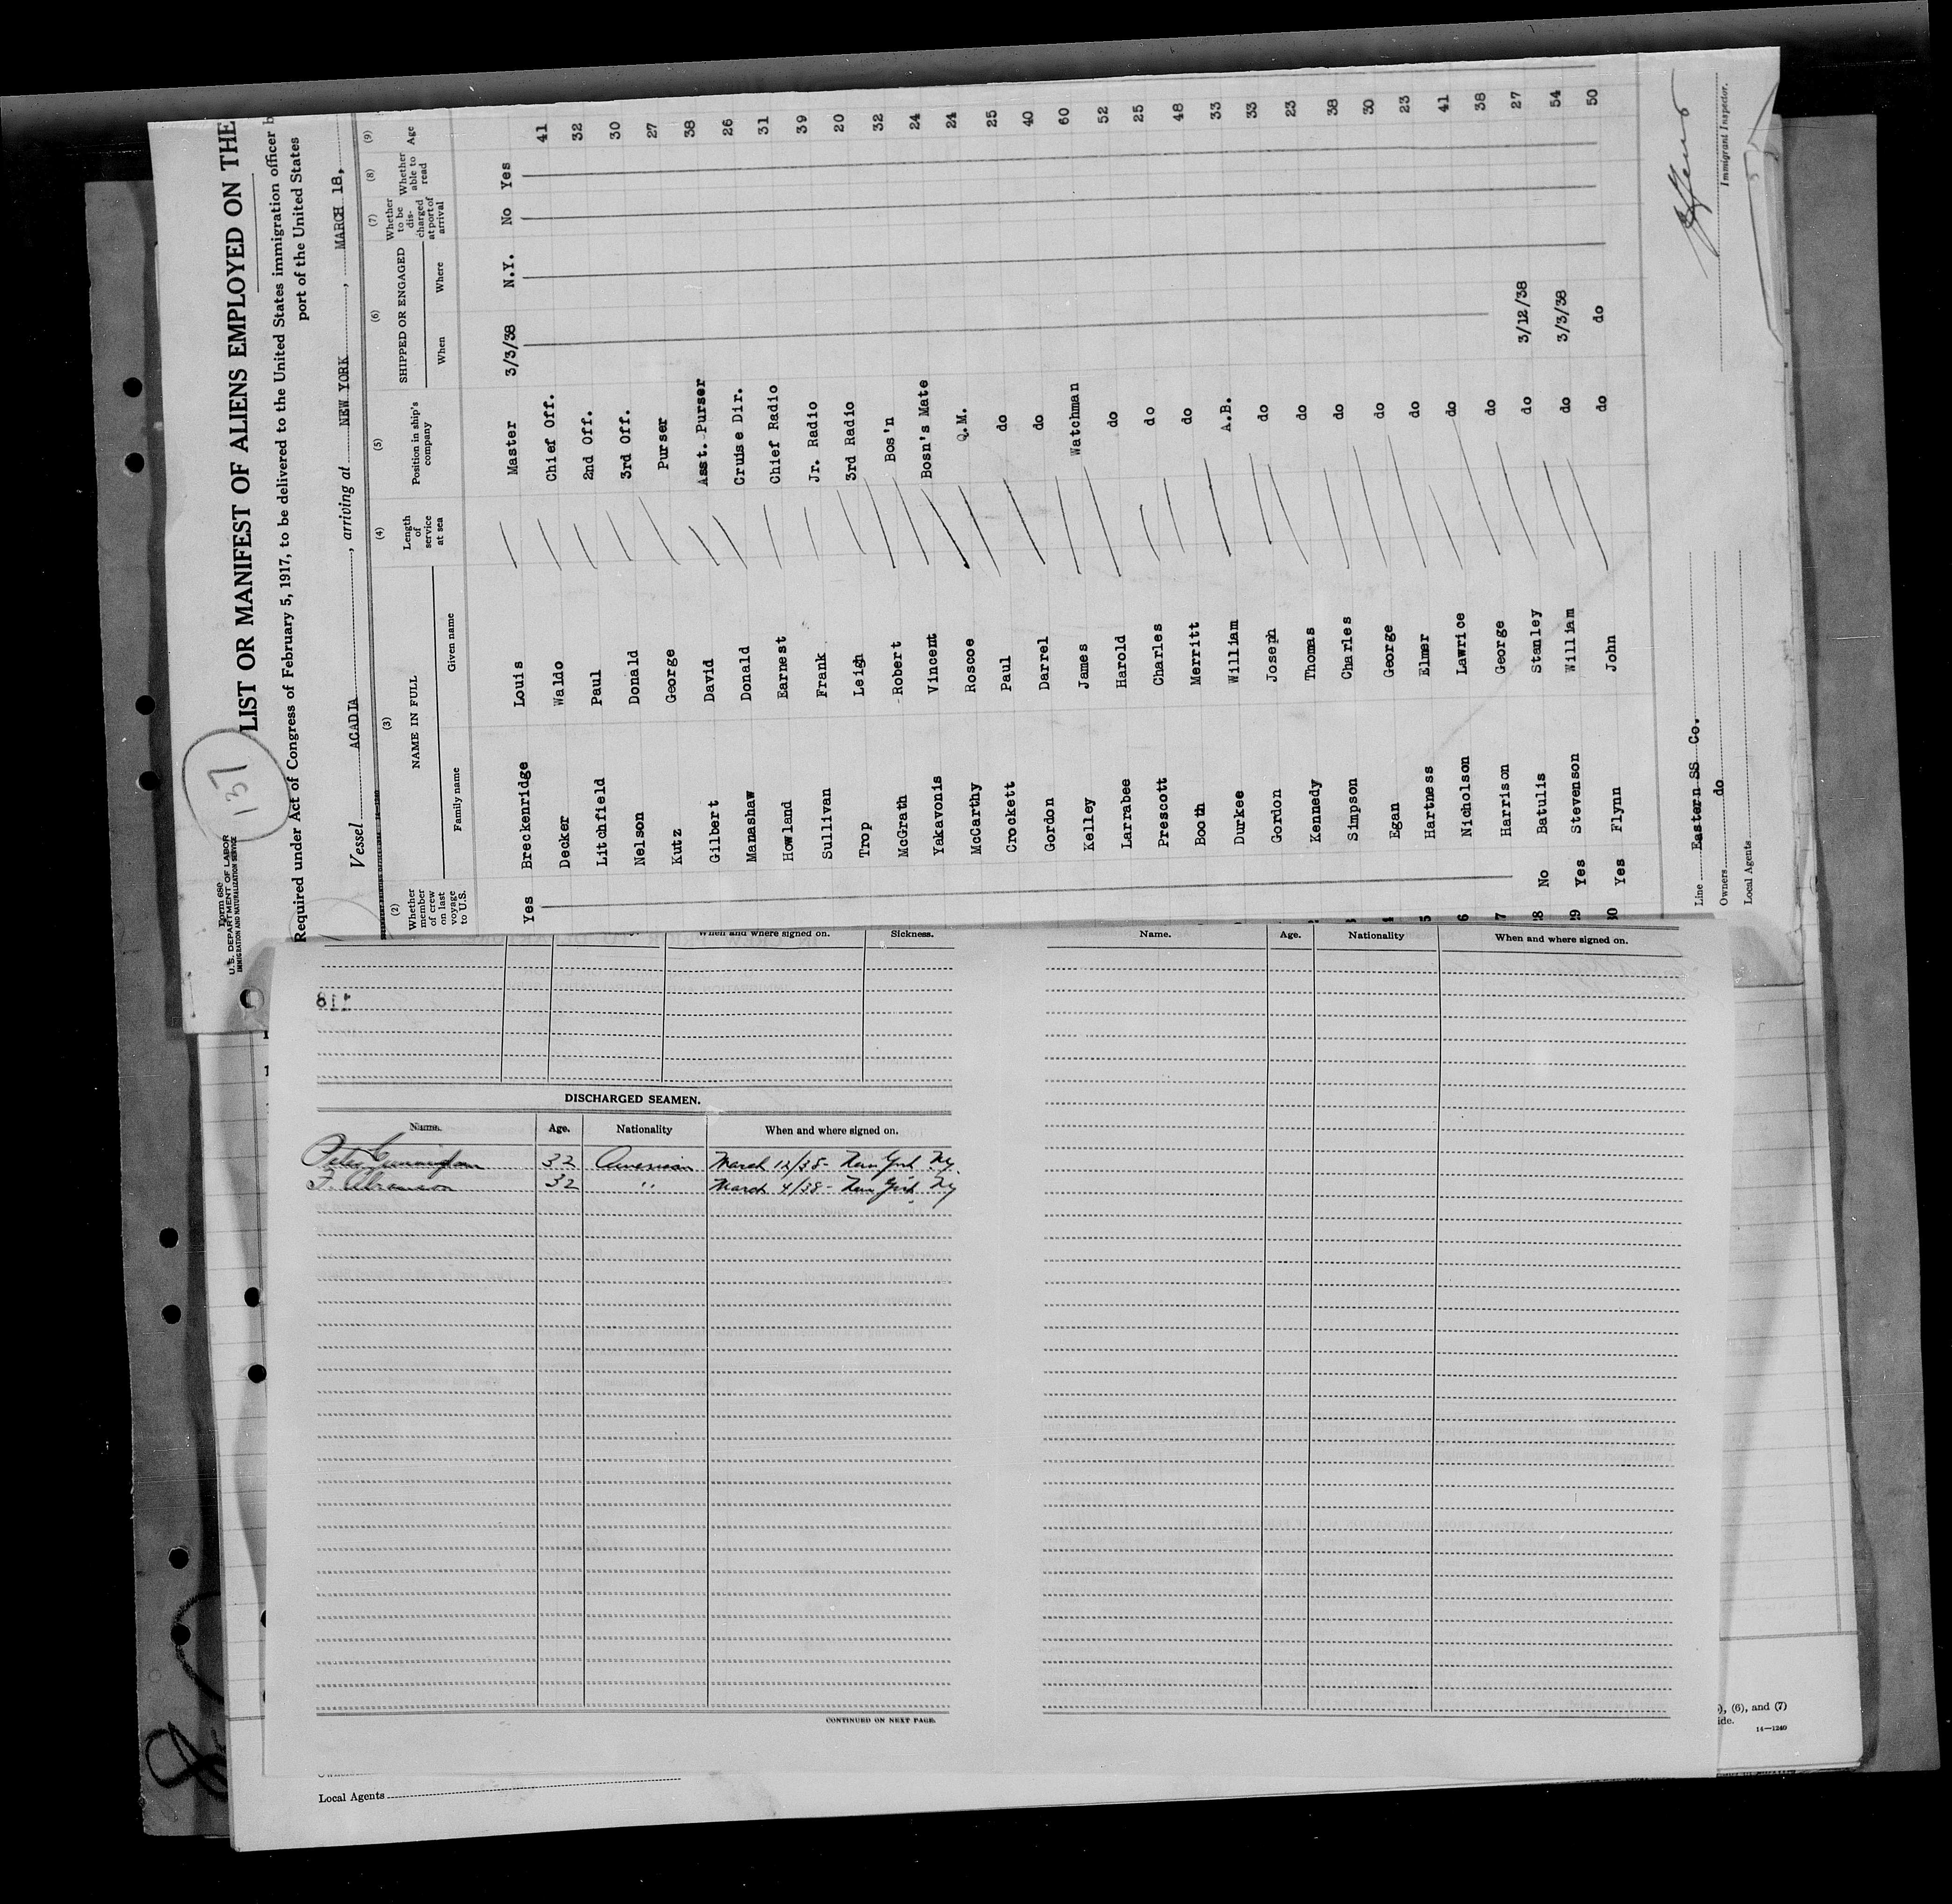 Form 680
U.S. DEPARTMENT OF LABOR
IMMIGRATION AND NATURALIZATION SERVICE
137
LIST OR MANIFEST OF ALIENS EMPLOYED ON THE
Required under Act of Congress of February 5, 1917, to be delivered to the United States immigration officer b
port of the United States
Vessel ACADIA, arriving at NEW YORK, MARCH 18,
(2) (3) (4) (5) (6) (7) (8) (9)
Whether member of crew on last voyage to U.S. NAME IN FULL Family name Given name Length of service at sea Position in ship's company SHIPPED OR ENGAGED When Where Whether to be discharged at port of arrival Whether able to read Age
Yes Breckenridge Louis Master 3/3/38 N.Y. No Yes
Decker Waldo Chief Off. 41
Litchfield Paul 2nd Off. 32
Nelson Donald 3rd Off. 30
Kutz George Purser 27
Gilbert David Asst. Purser 38
Manashaw Donald Cruise Dir. 26
Howland Earnest Chief Radio 31
Sullivan Frank Jr. Radio 39
Trop Leigh 3rd Radio 20
McGrath Robert Bos'n 32
Yakavonis Vincent Bosn's Mate 24
McCarthy Roscoe Q.M. 24
Crockett Paul do 25
Gordon Darrel do 40
Kelley James Watchman 60
Larrabee Harold do 52
Prescott Charles do 25
Booth Merritt do 48
Durkee William A.B. 33
Gordon Joseph do 33
Kennedy Thomas do 23
Simpson Charles do 38
4 Egan George do 30
5 Hartness Elmer do 23
6 Nicholson Lawrice do 41
7 Harrison George do 38
28 No Batulis Stanley do 3/12/38 27
29 Yes Stevenson William do 3/3/38 54
30 Yes Flynn John do do 50
Line Eastern SS Co.
Owners do
Local Agents
Immigrant Inspector.
When and where signed on. Sickness.
118
DISCHARGED SEAMEN.
Name. Age. Nationality When and where signed on.
Peter Cunningham 32 American March 12/38 - New York Ny.
F. 32 " March 4/38 - New York Ny
CONTINUED ON NEXT PAGE.
Name. Age. Nationality When and where signed on.
), (6), and (7)
ide.
14—1240
Local Agents